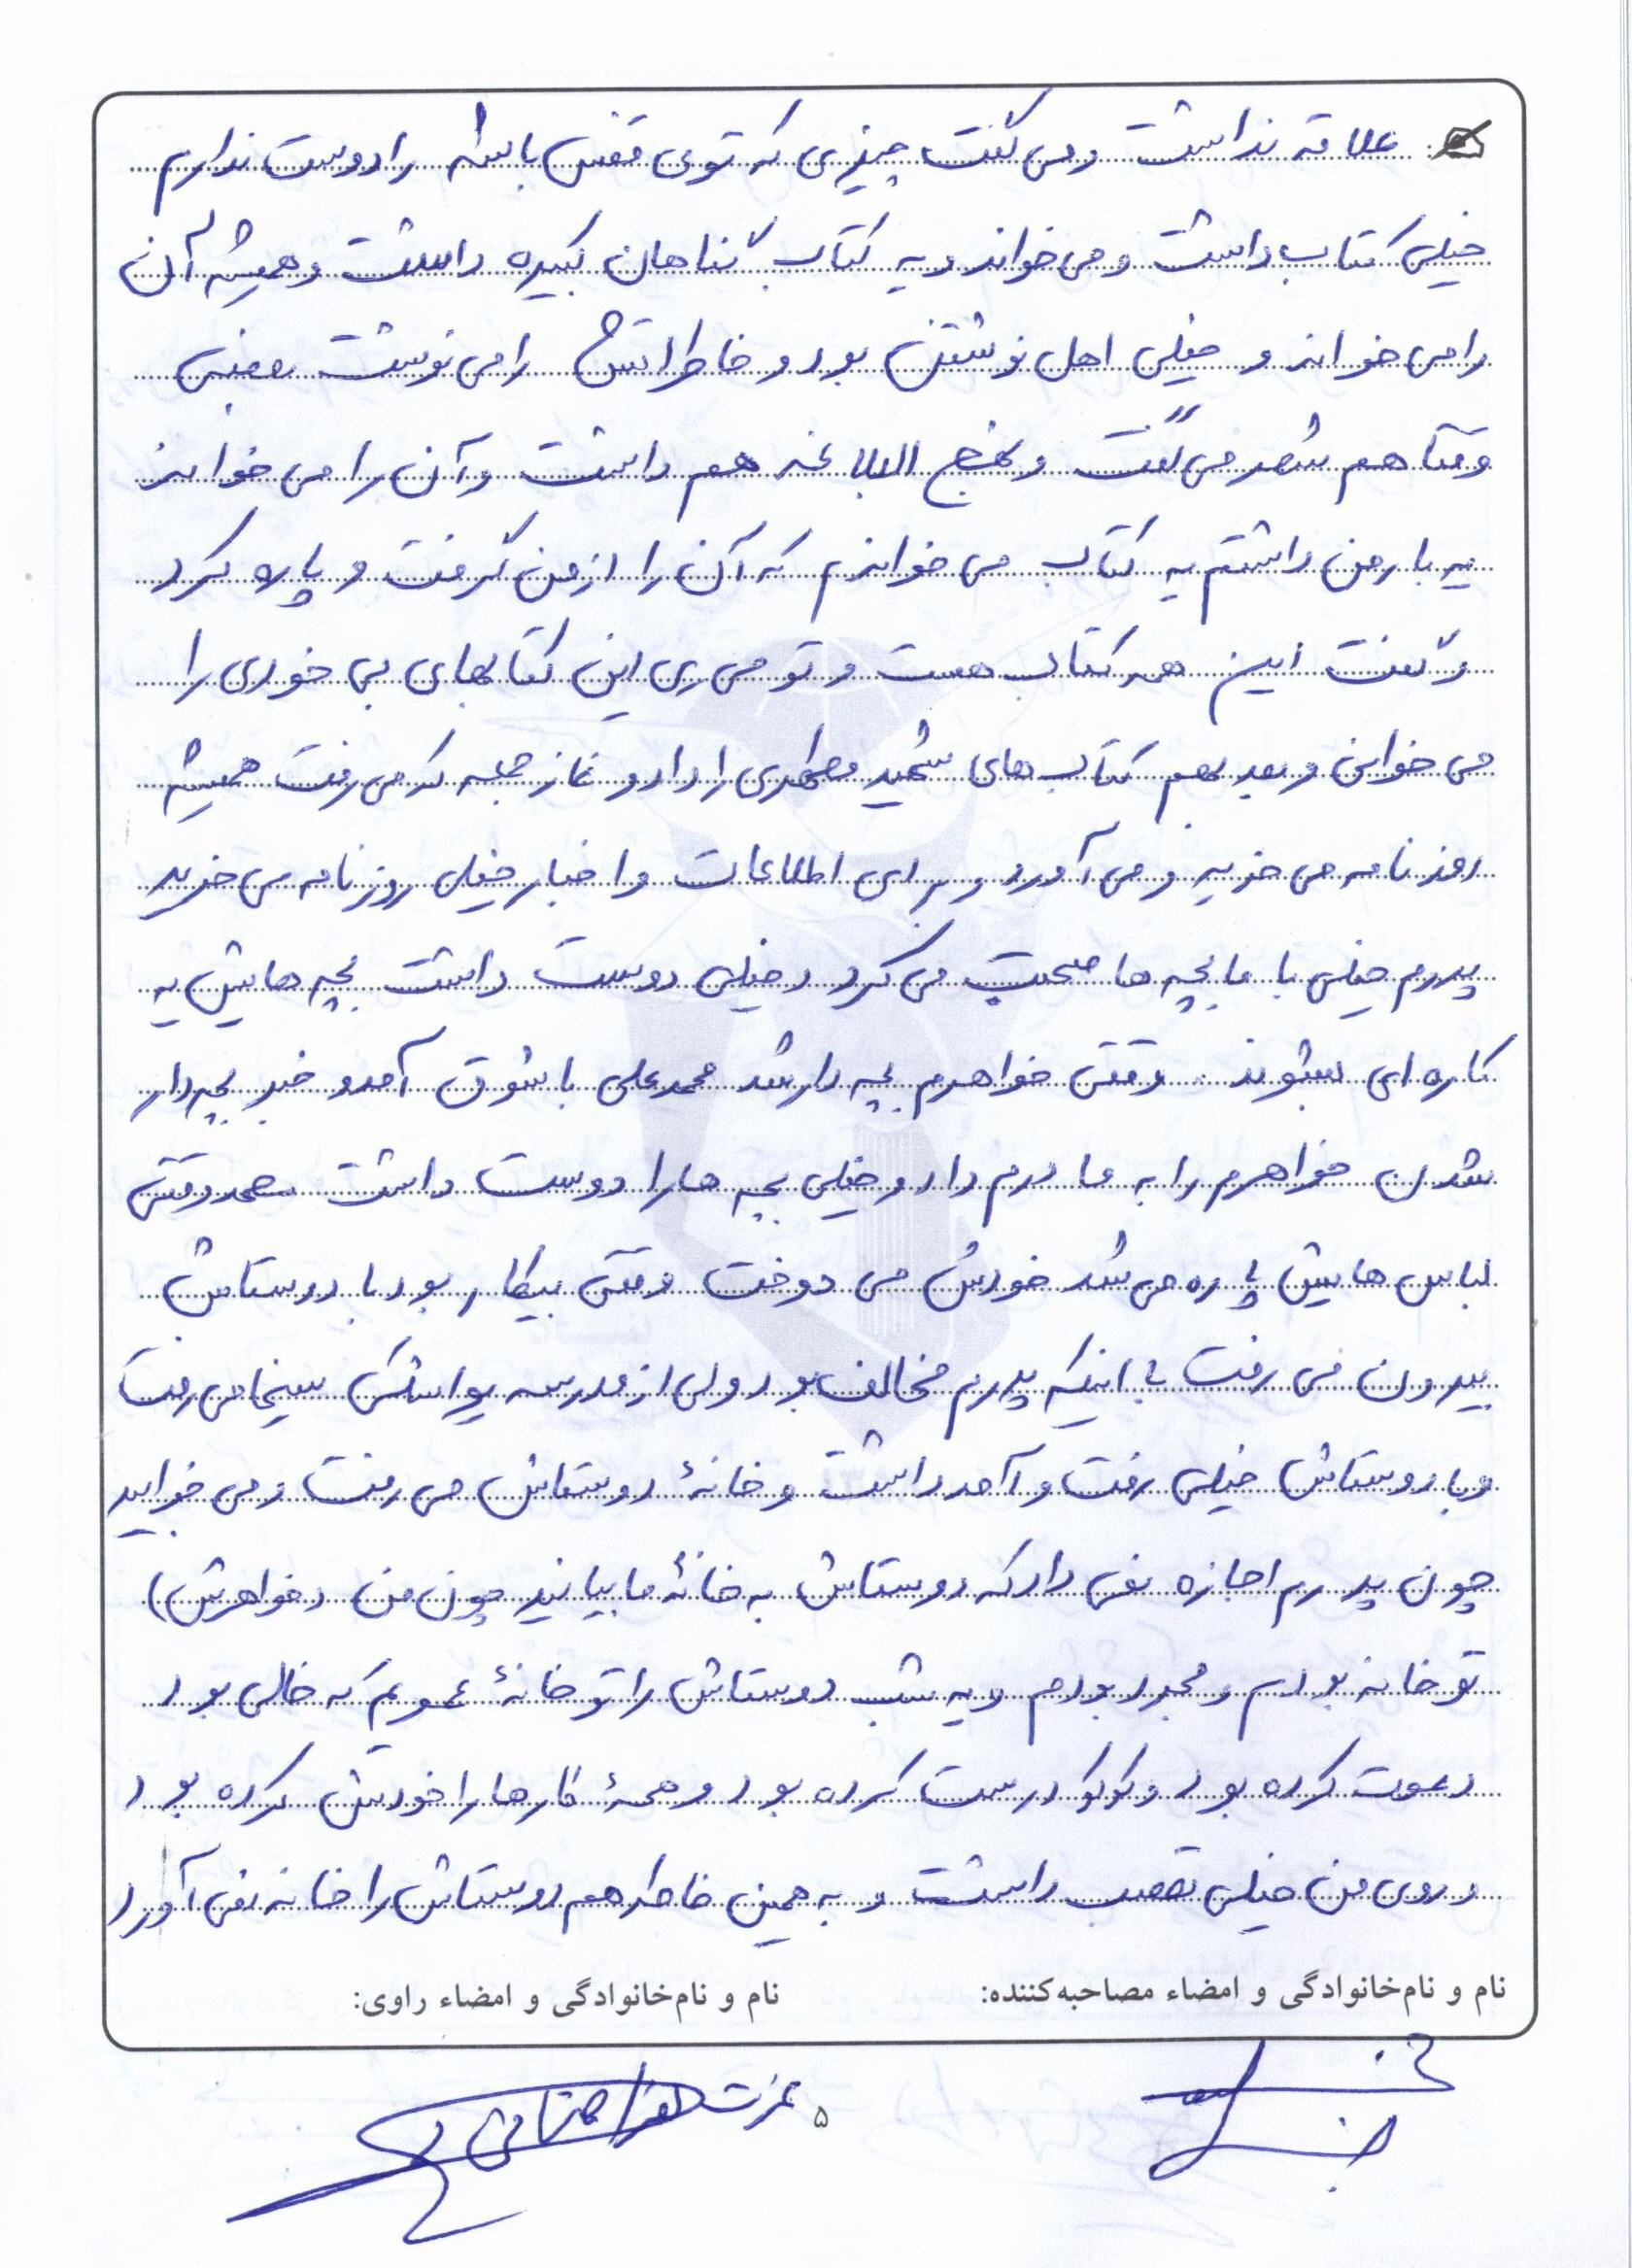 علاقه نداشت و می گفت چیزی که توی قفس باشه را دوست ندارم
خیلی کتاب داشت و می خواند و یه کتاب گناهان کبیره داشت و همیشه آن
را می خواند و خیلی اهل نوشتن بود و خاطراتش را می نوشت بعضی
وقتا هم شعر می گفت و نهج البلاغه هم داشت و آن را می خواند
یه بار من داشتم یه کتاب می خواندم که آن را از من گرفت و پاره کرد
و گفت این همه کتاب هست و تو می ری این کتابهای بی خودی را
می خوانی و بعد بهم کتاب های شهید مطهری را داد و نماز جمعه که می رفت همیشه
روزنامه می خرید و می آورد و برای اطلاعات و اخبار خیلی روزنامه می خرید
پدرم خیلی با ما بچه ها صحبت می کرد و خیلی دوست داشت بچه هایش یه
کاره ای بشوند. وقتی خواهرم بچه دار شد محمدعلی با شوق آمد و خبر بچه دار
شدن خواهرم را به مادرم داد و خیلی بچه ها را دوست داشت محمد وقتی
لباس هایش پاره می شد خودش می دوخت وقتی بیکار بود با دوستاش
بیرون می رفت با اینکه پدرم مخالف بود ولی از مدرسه یواشکی سینما می رفت
و با دوستاش خیلی رفت و آمد داشت و خانهٔ دوستاش می رفت و می خوابید
چون پدرم اجازه نمی داد که دوستاش به خانهٔ ما بیایند چون من (خواهرش)
تو خانه بودم و مجرد بودم و یه شب دوستاش را تو خانهٔ عمویم که خالی بود
دعوت کرده بود و کوکو درست کرده بود و همهٔ کارها را خودش کرده بود
و روی من خیلی تعصب داشت و به همین خاطر هم دوستاش را خانه نمی آورد
نام و نام‌خانوادگی و امضاء مصاحبه‌کننده:
نام و نام‌خانوادگی و امضاء راوی:
عزت
۵